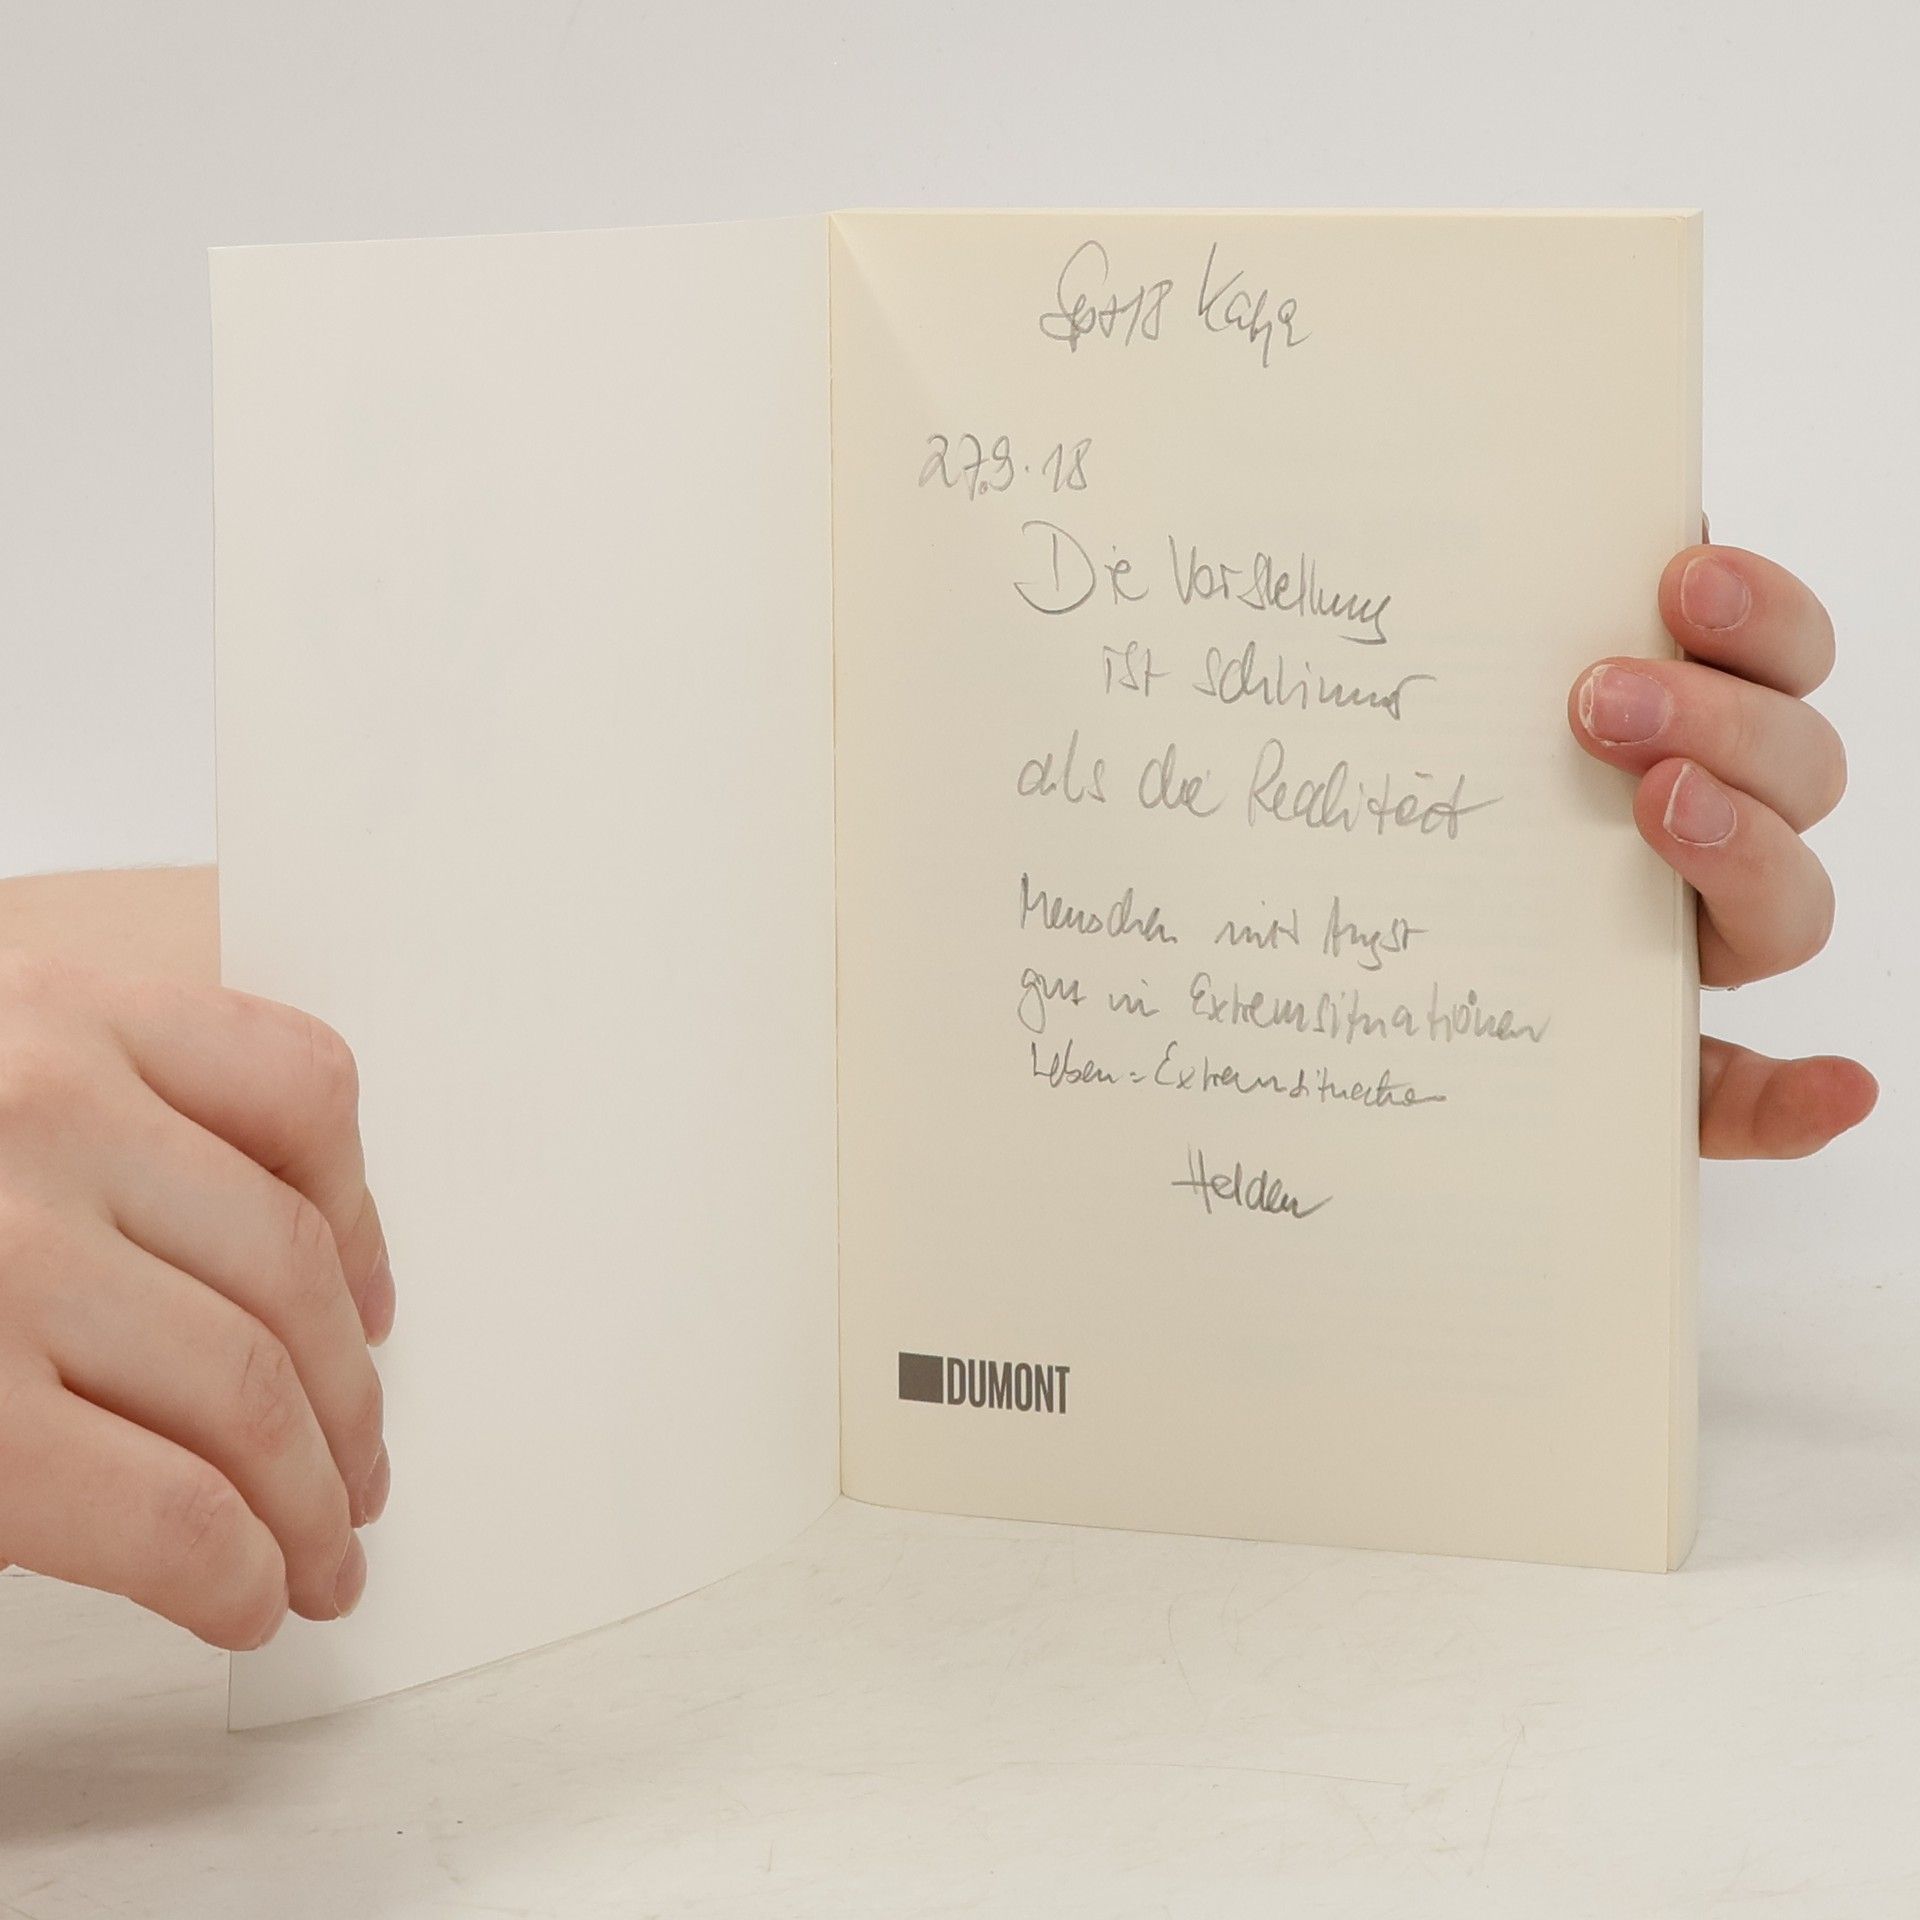 Sept 18 Katja
27.9.18
Die Vorstellung
ist schlimmer
als die Realität
Menschen mit Angst
gut in Extremsituationen
Leben = Extremsituation
Helden
DUMONT